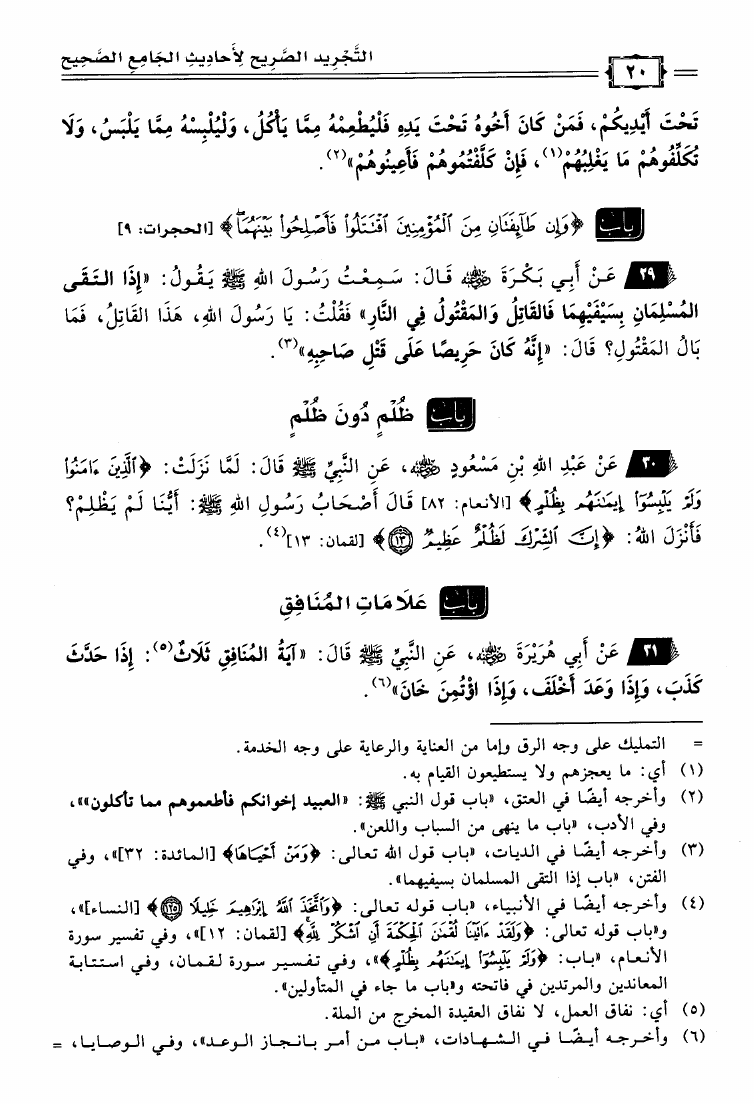 التَّجْرِيد الصَّرِيح لِأَحَادِيثِ الجَامِعِ الصَّحِيحِ
٢٠
تَحْتَ أَيْدِيكُمْ، فَمَنْ كَانَ أَخُوهُ تَحْتَ يَدِهِ فَلْيُطْعِمْهُ مِمَّا يَأْكُلُ، وَلْيُلْبِسْهُ مِمَّا يَلْبَسُ، وَلَا
تُكَلِّفُوهُمْ مَا يَغْلِبُهُمْ(١)، فَإِنْ كَلَّفْتُمُوهُمْ فَأَعِينُوهُمْ»(٢).
باب ﴿وَإِن طَآئِفَتَانِ مِنَ ٱلْمُؤْمِنِينَ ٱقْتَتَلُوا۟ فَأَصْلِحُوا۟ بَيْنَهُمَا﴾ [الحجرات: ٩]
٢٩ عَنْ أَبِي بَكْرَةَ رضي الله عنه قَالَ: سَمِعْتُ رَسُولَ اللهِ ﷺ يَقُولُ: «إِذَا التَقَى
المُسْلِمَانِ بِسَيْفَيْهِمَا فَالقَاتِلُ وَالمَقْتُولُ فِي النَّارِ» فَقُلْتُ: يَا رَسُولَ اللهِ، هَذَا القَاتِلُ، فَمَا
بَالُ المَقْتُولِ؟ قَالَ: «إِنَّهُ كَانَ حَرِيصًا عَلَى قَتْلِ صَاحِبِهِ»(٣).
باب ظُلْمٍ دُونَ ظُلْمٍ
٣٠ عَنْ عَبْدِ اللهِ بْنِ مَسْعُودٍ رضي الله عنه، عَنِ النَّبِيِّ ﷺ قَالَ: لَمَّا نَزَلَتْ: ﴿ٱلَّذِينَ ءَامَنُوا۟
وَلَمْ يَلْبِسُوٓا۟ إِيمَـٰنَهُم بِظُلْمٍ﴾ [الأنعام: ٨٢] قَالَ أَصْحَابُ رَسُولِ اللهِ ﷺ: أَيُّنَا لَمْ يَظْلِمْ؟
فَأَنْزَلَ اللهُ: ﴿إِنَّ ٱلشِّرْكَ لَظُلْمٌ عَظِيمٌ ١٣﴾ [لقمان: ١٣](٤).
باب عَلَامَاتِ المُنَافِقِ
٣١ عَنْ أَبِي هُرَيْرَةَ رضي الله عنه، عَنِ النَّبِيِّ ﷺ قَالَ: «آيَةُ المُنَافِقِ ثَلَاثٌ(٥): إِذَا حَدَّثَ
كَذَبَ، وَإِذَا وَعَدَ أَخْلَفَ، وَإِذَا اؤْتُمِنَ خَانَ»(٦).
= التمليك على وجه الرق وإما من العناية والرعاية على وجه الخدمة.
(١) أي: ما يعجزهم ولا يستطيعون القيام به.
(٢) وأخرجه أيضًا في العتق، «باب قول النبي ﷺ: «العبيد إخوانكم فأطعموهم مما تأكلون»»،
وفي الأدب، «باب ما ينهى من السباب واللعن».
(٣) وأخرجه أيضًا في الديات، «باب قول الله تعالى: ﴿وَمَنْ أَحْيَاهَا﴾ [المائدة: ٣٢]»، وفي
الفتن، «باب إذا التقى المسلمان بسيفيهما».
(٤) وأخرجه أيضًا في الأنبياء، «باب قوله تعالى: ﴿وَٱتَّخَذَ ٱللَّهُ إِبْرَٰهِيمَ خَلِيلًا ١٢٥﴾ [النساء]»،
و«باب قوله تعالى: ﴿وَلَقَدْ ءَاتَيْنَا لُقْمَـٰنَ ٱلْحِكْمَةَ أَنِ ٱشْكُرْ لِلَّهِ﴾ [لقمان: ١٢]»، وفي تفسير سورة
الأنعام، «باب: ﴿وَلَمْ يَلْبِسُوٓا۟ إِيمَـٰنَهُم بِظُلْمٍ﴾»، وفي تفسير سورة لقمان، وفي استتابة
المعاندين والمرتدين في فاتحته و«باب ما جاء في المتأولين».
(٥) أي: نفاق العمل، لا نفاق العقيدة المخرج من الملة.
(٦) وأخرجه أيضًا في الشهادات، «باب من أمر بانجاز الوعد»، وفي الوصايا، =